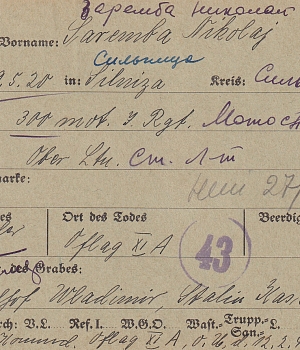 Заремба Николай
Vorname: Saremba Nikolaj
Сильница
.5.20 in: Silniza Kreis: Силь
300 mot. J. Rgt. Мотос
Ober Ltn. Ст. Л-т
arke:
нет 27/
es Ort des Todes Beerdig
Oflag XI A 43
des Grabes:
hof Wladimir, Stalin Kas
rch: V.L. Ref.I. W.G.O. Wast.- Trupp.- San.- L.
Kommand. Oflag XI A, O.U. d. 13.2.